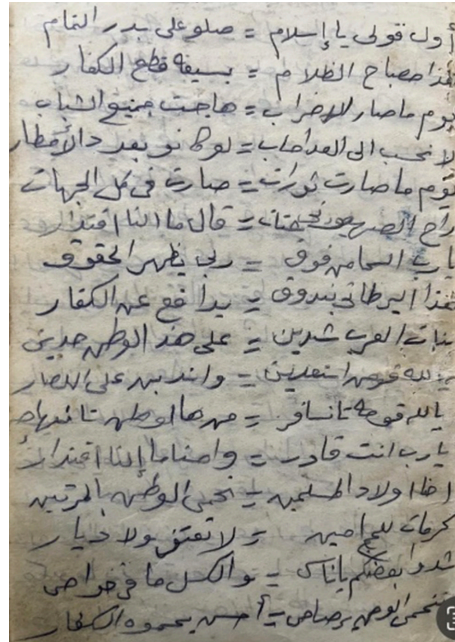 أول قولي يا إسلام = صلو على بدر التمام
هذا مصباح الظلام = بسيفه قطع الكفار
يوم ما صار للاضراب = هاجت جميع الشباب
لا نحسب الى العداحساب = لو كانو بعدد الأمطار
يوم ما صارت ثورات = صارت في كل الجهات
راح الصهيوني = قال ما النا اقتدار
يا رب السما من فوق = ربي يظهر الحقوق
هذا البرطاني بندوق = يدافع عن الكفار
بنات العرب شدين = على هذ الوطن
يالله = واندبين على
يالله قومه تا نسافر = من ها لوطن تا
يا رب انت قادر = واحنا ما إلنا اقتدار
احنا اولاد المسلمين = نحمي الوطن بالمرتين
كرمات للحرامين = ولا نعتق ولا ديار
شدو بعضكم يا ناس = والكل ما في
نحمي الوطن برصاص = أحسن يحموه الكفار